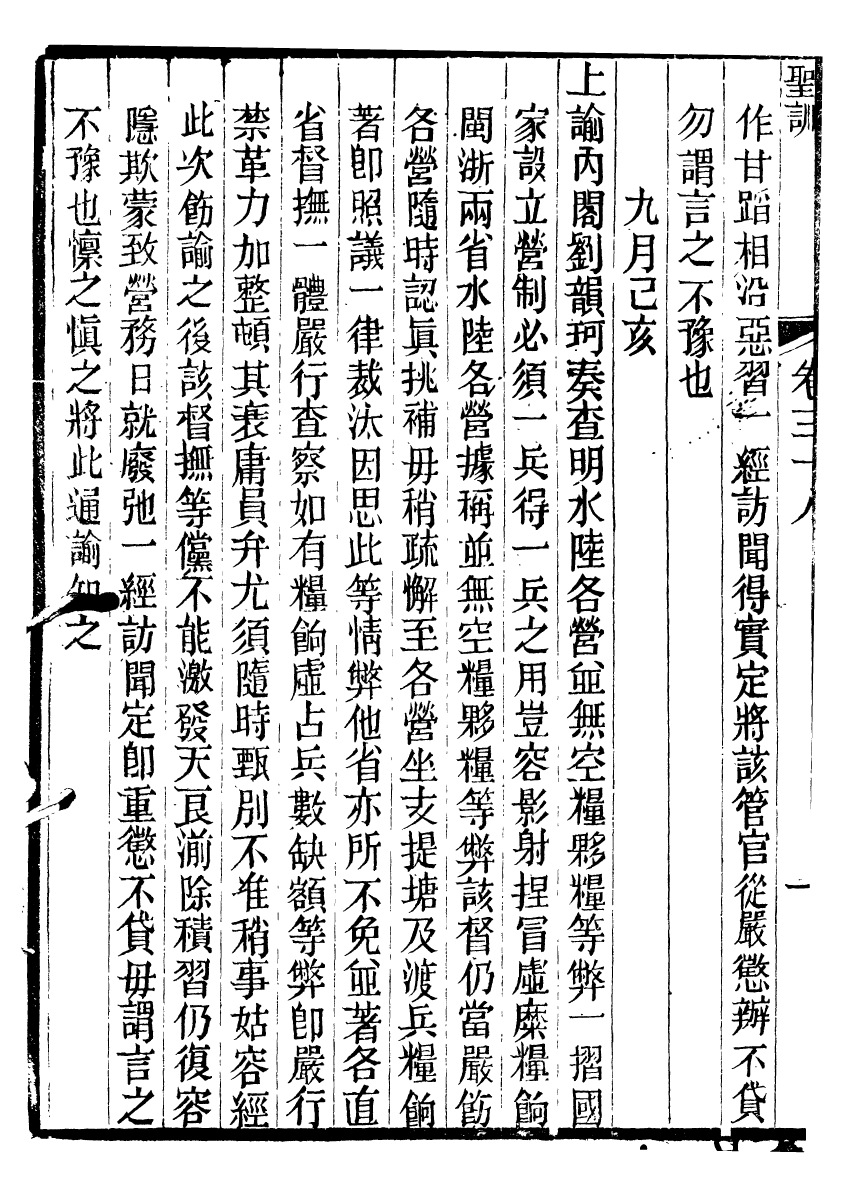 聖訓 卷三十八 一
作甘蹈相沿惡習一經訪聞得實定將該管官從嚴懲辦不貸
勿謂言之不豫也
九月己亥
上諭內閣劉韻珂奏查明水陸各營並無空糧夥糧等弊一摺國
家設立營制必須一兵得一兵之用豈容影射捏冒虛糜糧餉
閩浙兩省水陸各營據稱並無空糧夥糧等弊該督仍當嚴飭
各營隨時認眞挑補毋稍疏懈至各營坐支提塘及渡兵糧餉
著卽照議一律裁汰因思此等情弊他省亦所不免並著各直
省督撫一體嚴行查察如有糧餉虛占兵數缺額等弊卽嚴行
禁革力加整頓其衰庸員弁尤須隨時甄別不准稍事姑容經
此次飭諭之後該督撫等儻不能激發天良湔除積習仍復容
隱欺蒙致營務日就廢弛一經訪聞定卽重懲不貸毋謂言之
不豫也懍之愼之將此通諭知之